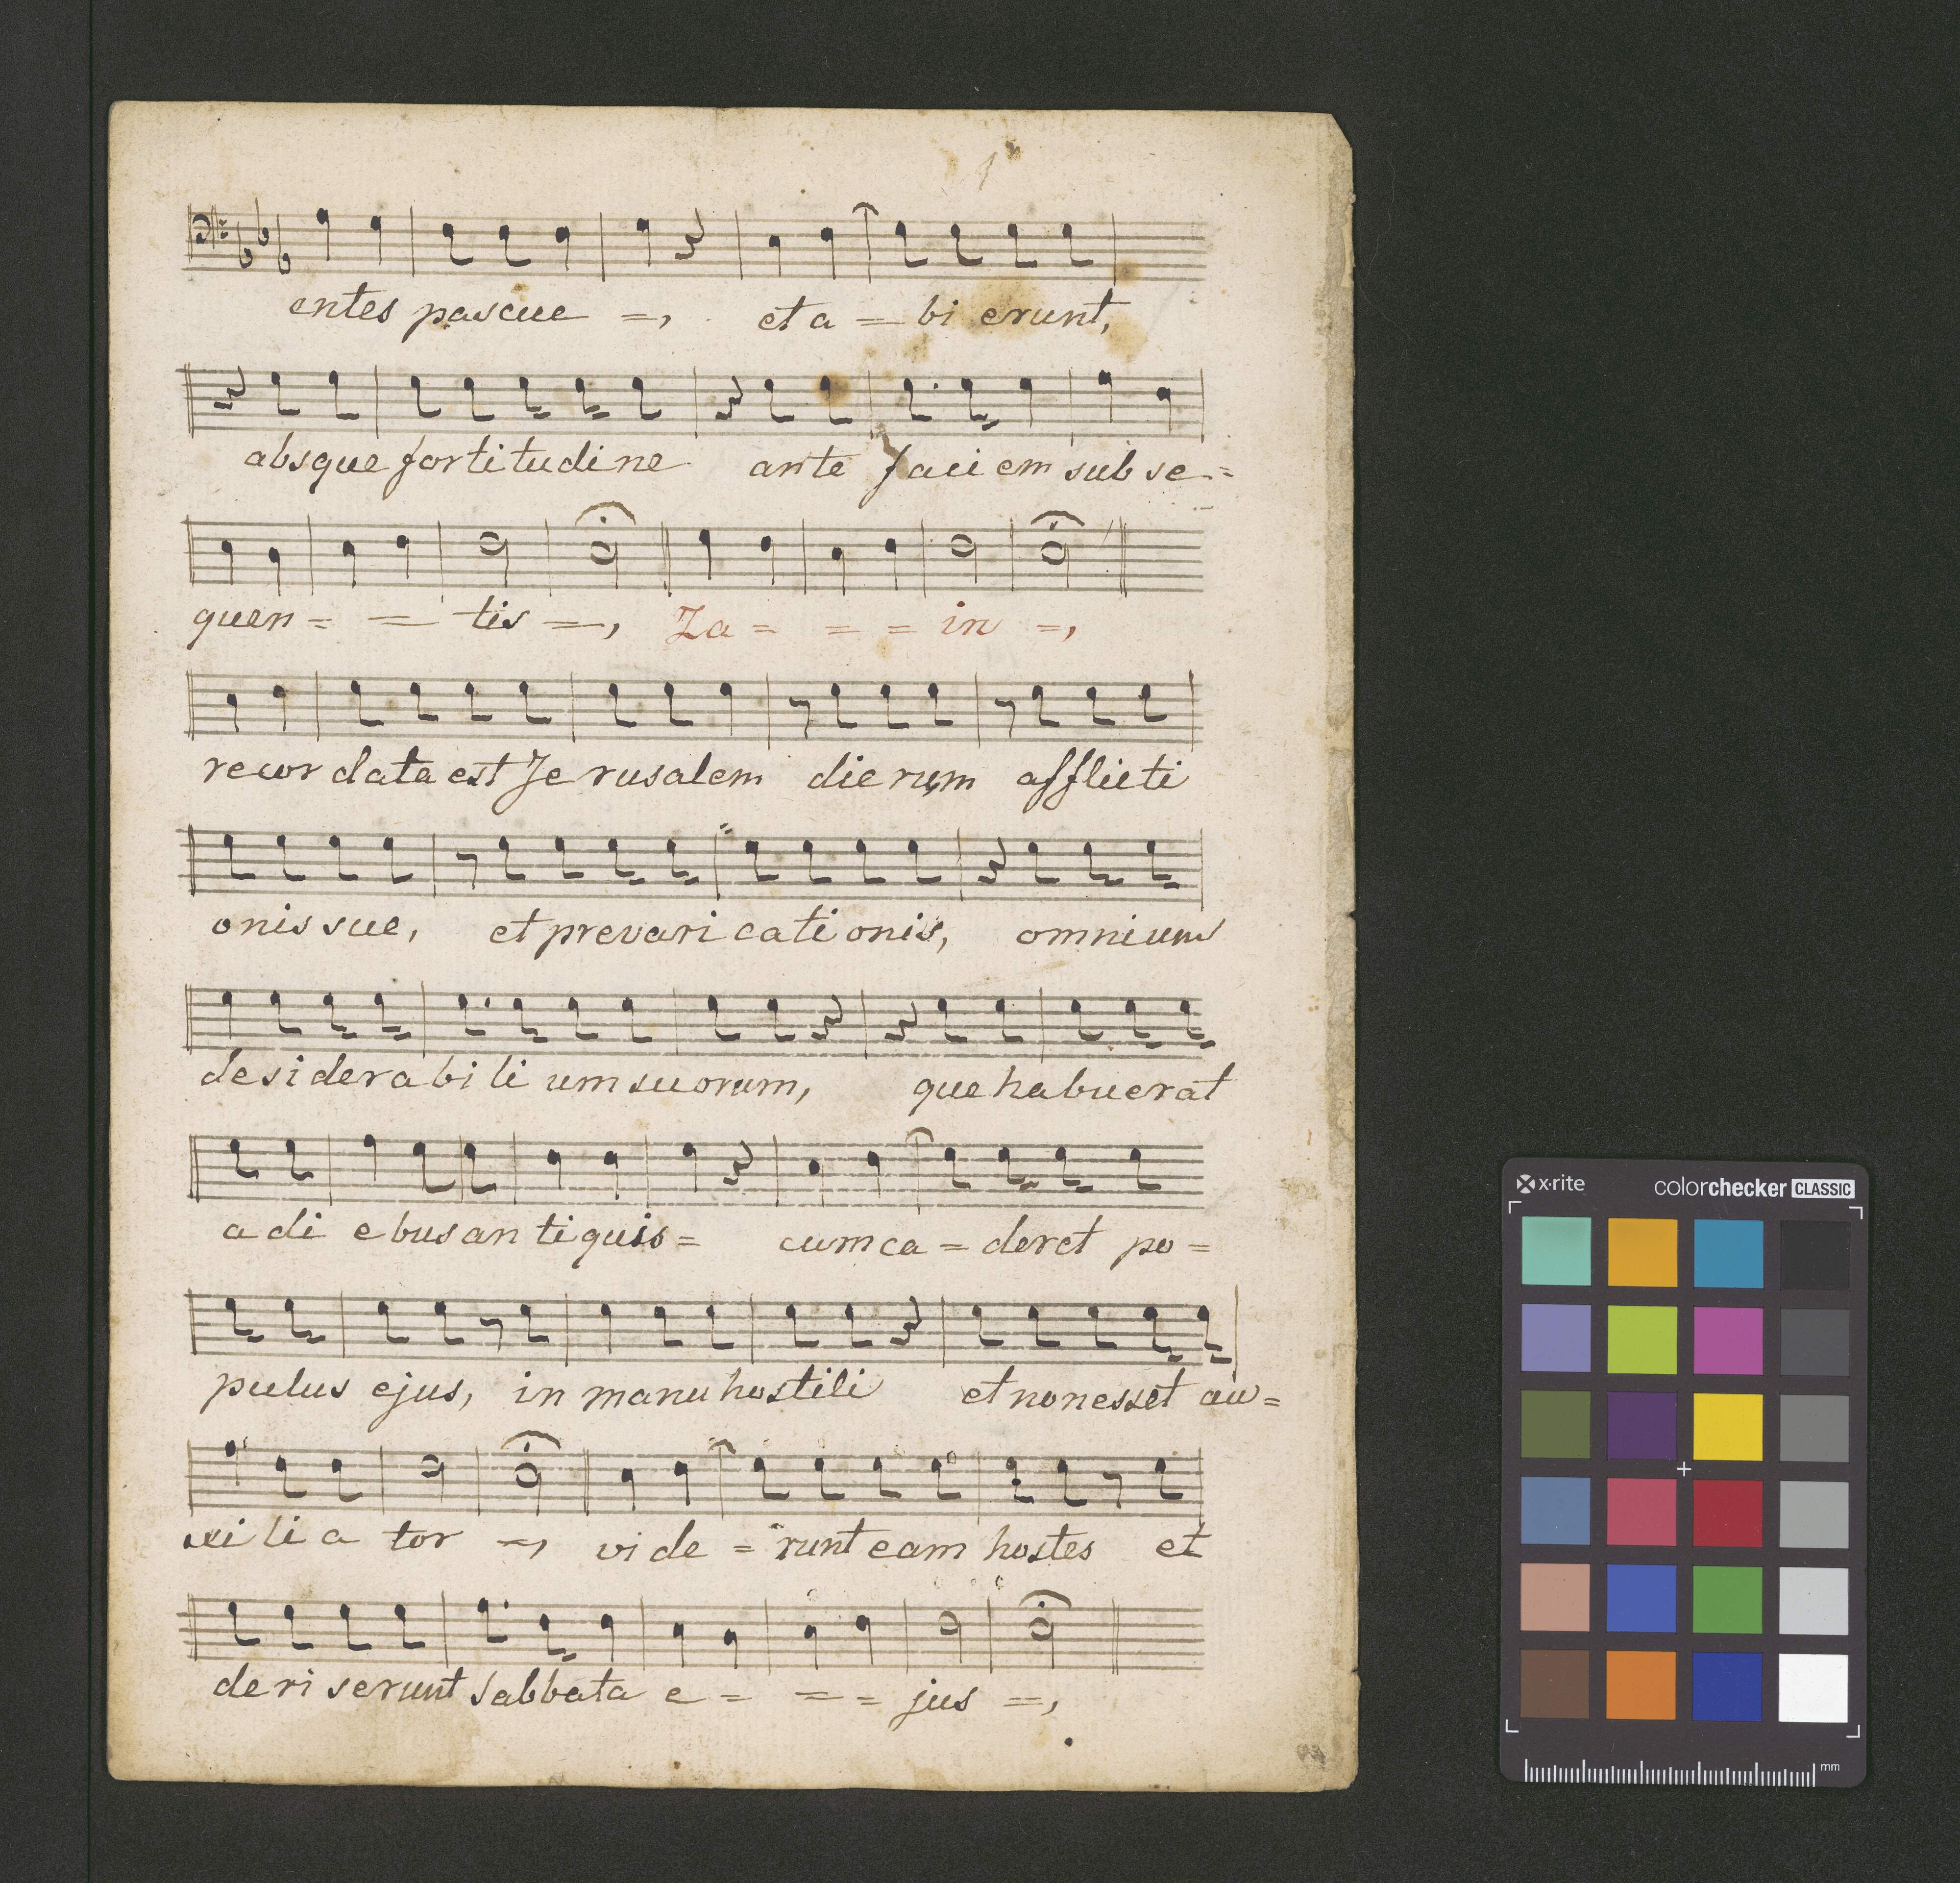 1
entes pascue =, et a = bi erunt,
absque fortitudine ante faciem sub se =
quen = = tis =, Za = = = in =,
recor data est Je rusalem die rum afflicti
onis sue, et prevari cati onis, omnium
desidera bi li um suorum, que habuerat
a di ebus an tiquis = cum ca = deret po =
pulus ejus, in manu hostili et non esset au =
xi li a tor =, vi de = runt eam hostes et
de ri serunt sabbata e = = = jus =,
x·rite colorchecker CLASSIC
mm